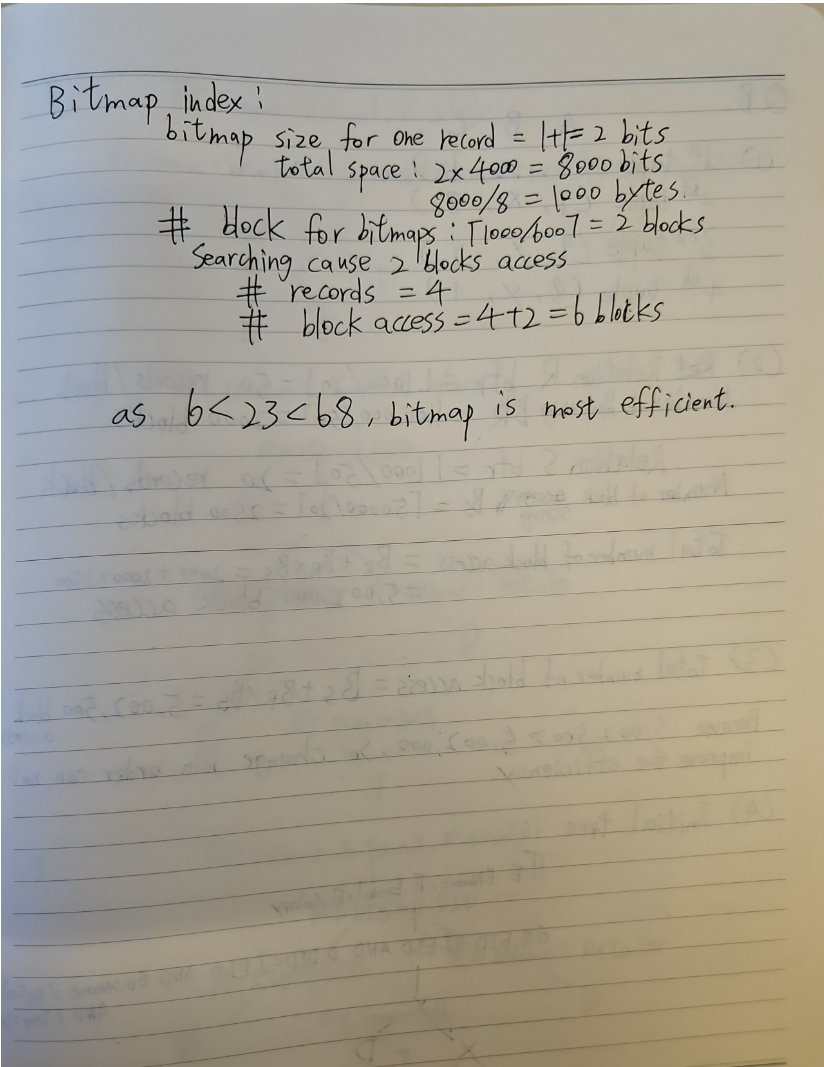 Bitmap index :
bitmap size for one record = 1+1= 2 bits
total space : 2x4000 = 8000 bits
8000/8 = 1000 bytes.
# block for bitmaps : ⌈1000/600⌉ = 2 blocks
Searching cause 2 blocks access
# records = 4
# block access = 4+2 = 6 blocks
as 6<23<68, bitmap is most efficient.